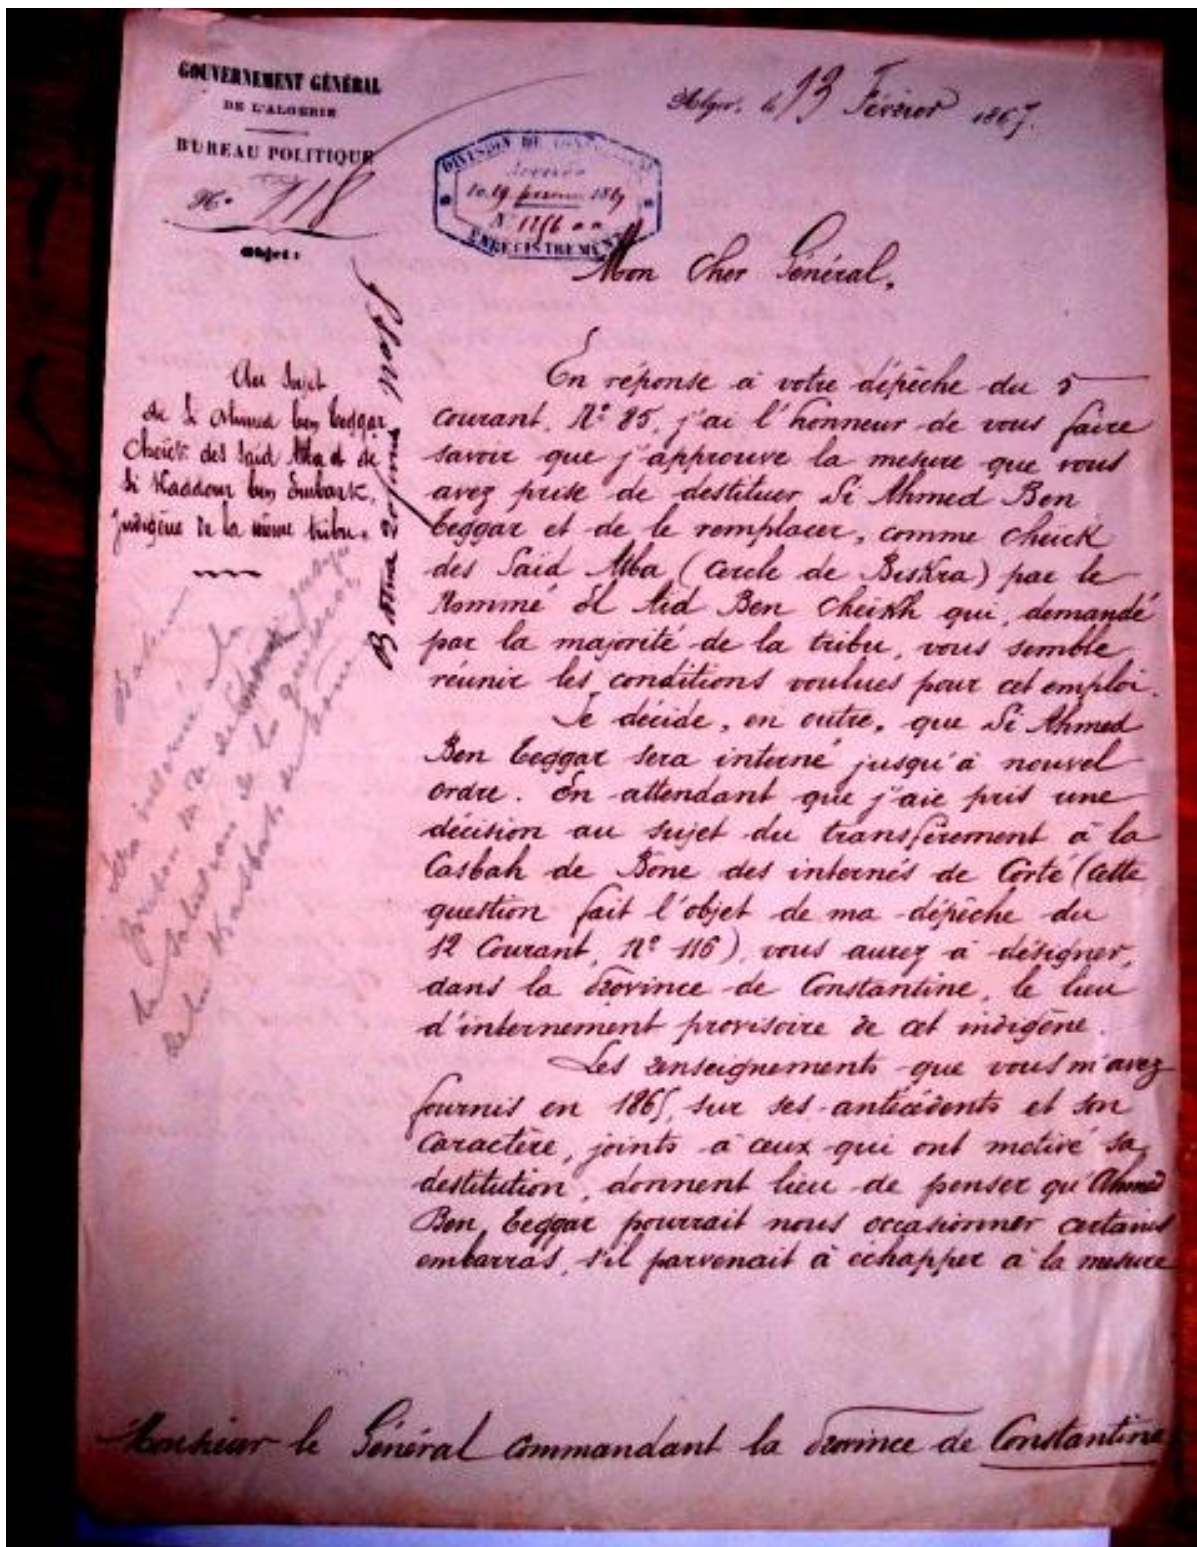 GOUVERNEMENT GÉNÉRAL
DE L'ALGÉRIE
BUREAU POLITIQUE
N° 118
Objet :
Alger, le 13 Février 1867.
DIVISION DE CONSTANTINE
ENREGISTREMENT
Mon Cher Général,
Au Sujet
de Si Ahmed ben Eeggar
Cheick des Saïd Atba et de
Si Kaddour ben Embark,
indigène de la même tribu.
Batna 20 N° 58
En réponse à votre dépêche du 5
courant, N° 85, j'ai l'honneur de vous faire
savoir que j'approuve la mesure que vous
avez prise de destituer Si Ahmed Ben
Eeggar et de le remplacer, comme cheick
des Saïd Atba (cercle de Biskra) par le
nommé El Aïd Ben Cheikh qui, demandé
par la majorité de la tribu, vous semble
réunir les conditions voulues pour cet emploi.
Je décide, en outre, que Si Ahmed
Ben Eeggar sera interné jusqu'à nouvel
ordre. En attendant que j'aie pris une
décision au sujet du transfèrement à la
Casbah de Bône des internés de Corté (cette
question fait l'objet de ma dépêche du
12 Courant, N° 116), vous aurez à désigner,
dans la Province de Constantine, le lieu
d'internement provisoire de cet indigène.
Les renseignements que vous m'avez
fournis en 1865, sur ses antécédents et son
caractère, joints à ceux qui ont motivé sa
destitution, donnent lieu de penser qu'Ahmed
Ben Eeggar pourrait nous occasionner certains
embarras, s'il parvenait à échapper à la mesure
Monsieur le Général Commandant la Province de Constantine